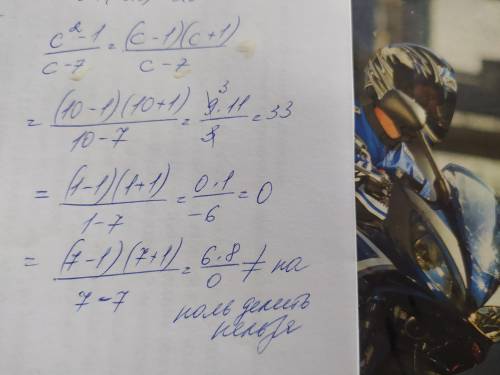 c²-1/c-7 = (c-1)(c+1)/c-7
= (10-1)(10+1)/10-7 = 9·11/3 = 33
= (1-1)(1+1)/1-7 = 0·1/-6 = 0
= (7-1)(7+1)/7-7 = 6·8/0 ≠ на
ноль делить
нельзя